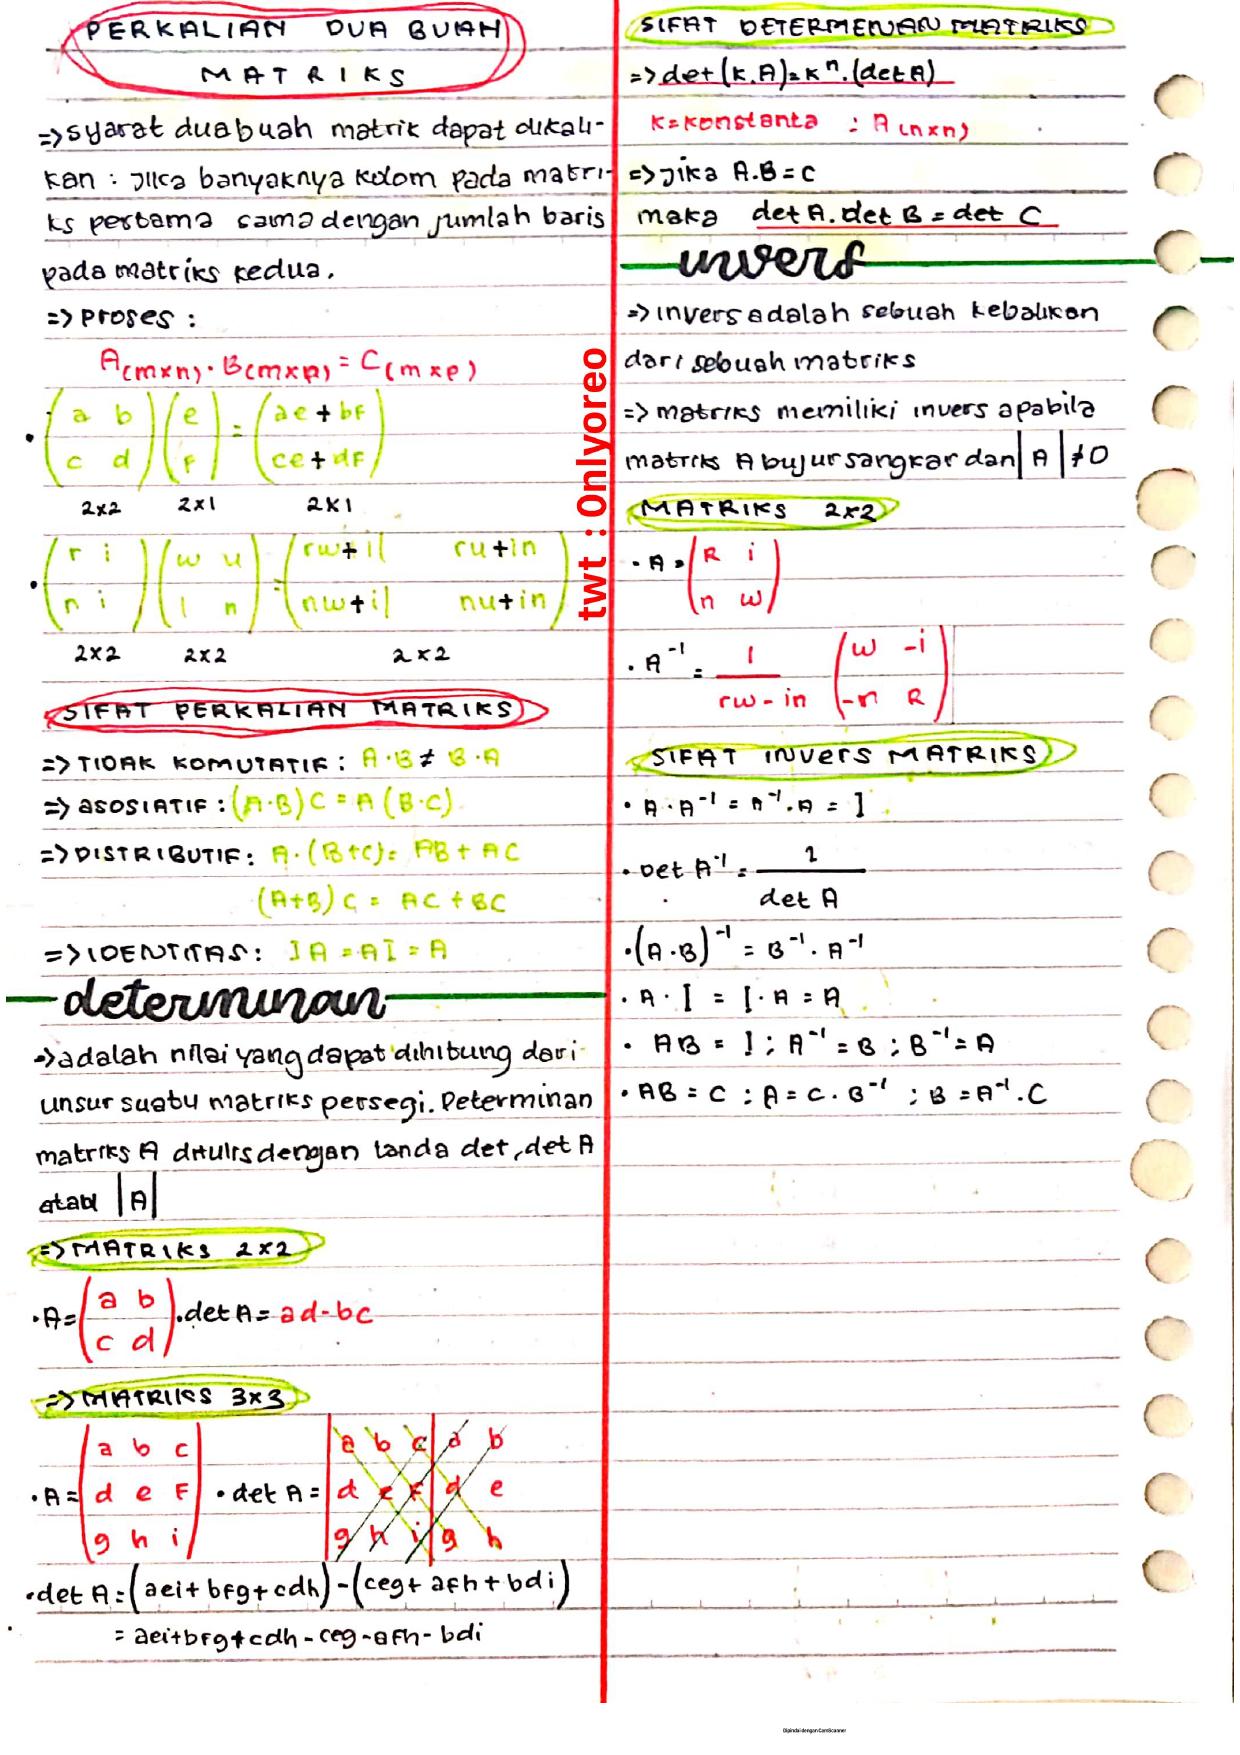 PERKALIAN DUA BUAH
MATRIKS
=> syarat dua buah matrik dapat dikali-
kan : Jika banyaknya kolom pada matri-
ks pertama sama dengan jumlah baris
pada matriks kedua.
=> Proses :
A(m×n) . B(m×p) = C(m×p)
• (a b) (e) = (ae + bf)
(c d) (f) (ce + df)
2x2 2x1 2x1
• (r i) (w u) = (rw+il ru+in)
(n i) (l n) (nw+il nu+in)
2x2 2x2 2x2
SIFAT PERKALIAN MATRIKS
=> TIDAK KOMUTATIF : A·B ≠ B·A
=> ASOSIATIF : (A·B) C = A (B·C)
=> DISTRIBUTIF : A·(B+C) = AB + AC
(A+B) C = AC + BC
=> IDENTITAS : IA = AI = A
determinan
=> adalah nilai yang dapat dihitung dari
unsur suatu matriks persegi. Determinan
matriks A ditulis dengan tanda det, det A
atau |A|
=> MATRIKS 2x2
• A = (a b) . det A = ad-bc
(c d)
=> MATRIKS 3x3
(a b c) |a b c| a b
• A = (d e f) • det A = |d e f| d e
(g h i) |g h i| g h
• det A = (aei + bfg + cdh) - (ceg + afh + bdi)
= aei+bfg+cdh - ceg - afh - bdi
twt : Onlyoreo
SIFAT DETERMENAN MATRIKS
=> det (k.A) = kⁿ. (det A)
K = konstanta : A (n×n)
=> Jika A.B = C
maka det A . det B = det C
invers
=> invers adalah sebuah kebalikan
dari sebuah matriks
=> matriks memiliki invers apabila
matriks A bujur sangkar dan |A| ≠ 0
MATRIKS 2x2
• A = (R i)
(n w)
• A⁻¹ = 1 (w -i)
rw - in (-n R)
SIFAT INVERS MATRIKS
• A · A⁻¹ = A⁻¹ . A = I
• Det A⁻¹ = 1
det A
• (A·B)⁻¹ = B⁻¹ . A⁻¹
• A · I = I · A = A
• AB = I ; A⁻¹ = B ; B⁻¹ = A
• AB = C ; A = C . B⁻¹ ; B = A⁻¹ . C
Dipindai dengan CamScanner